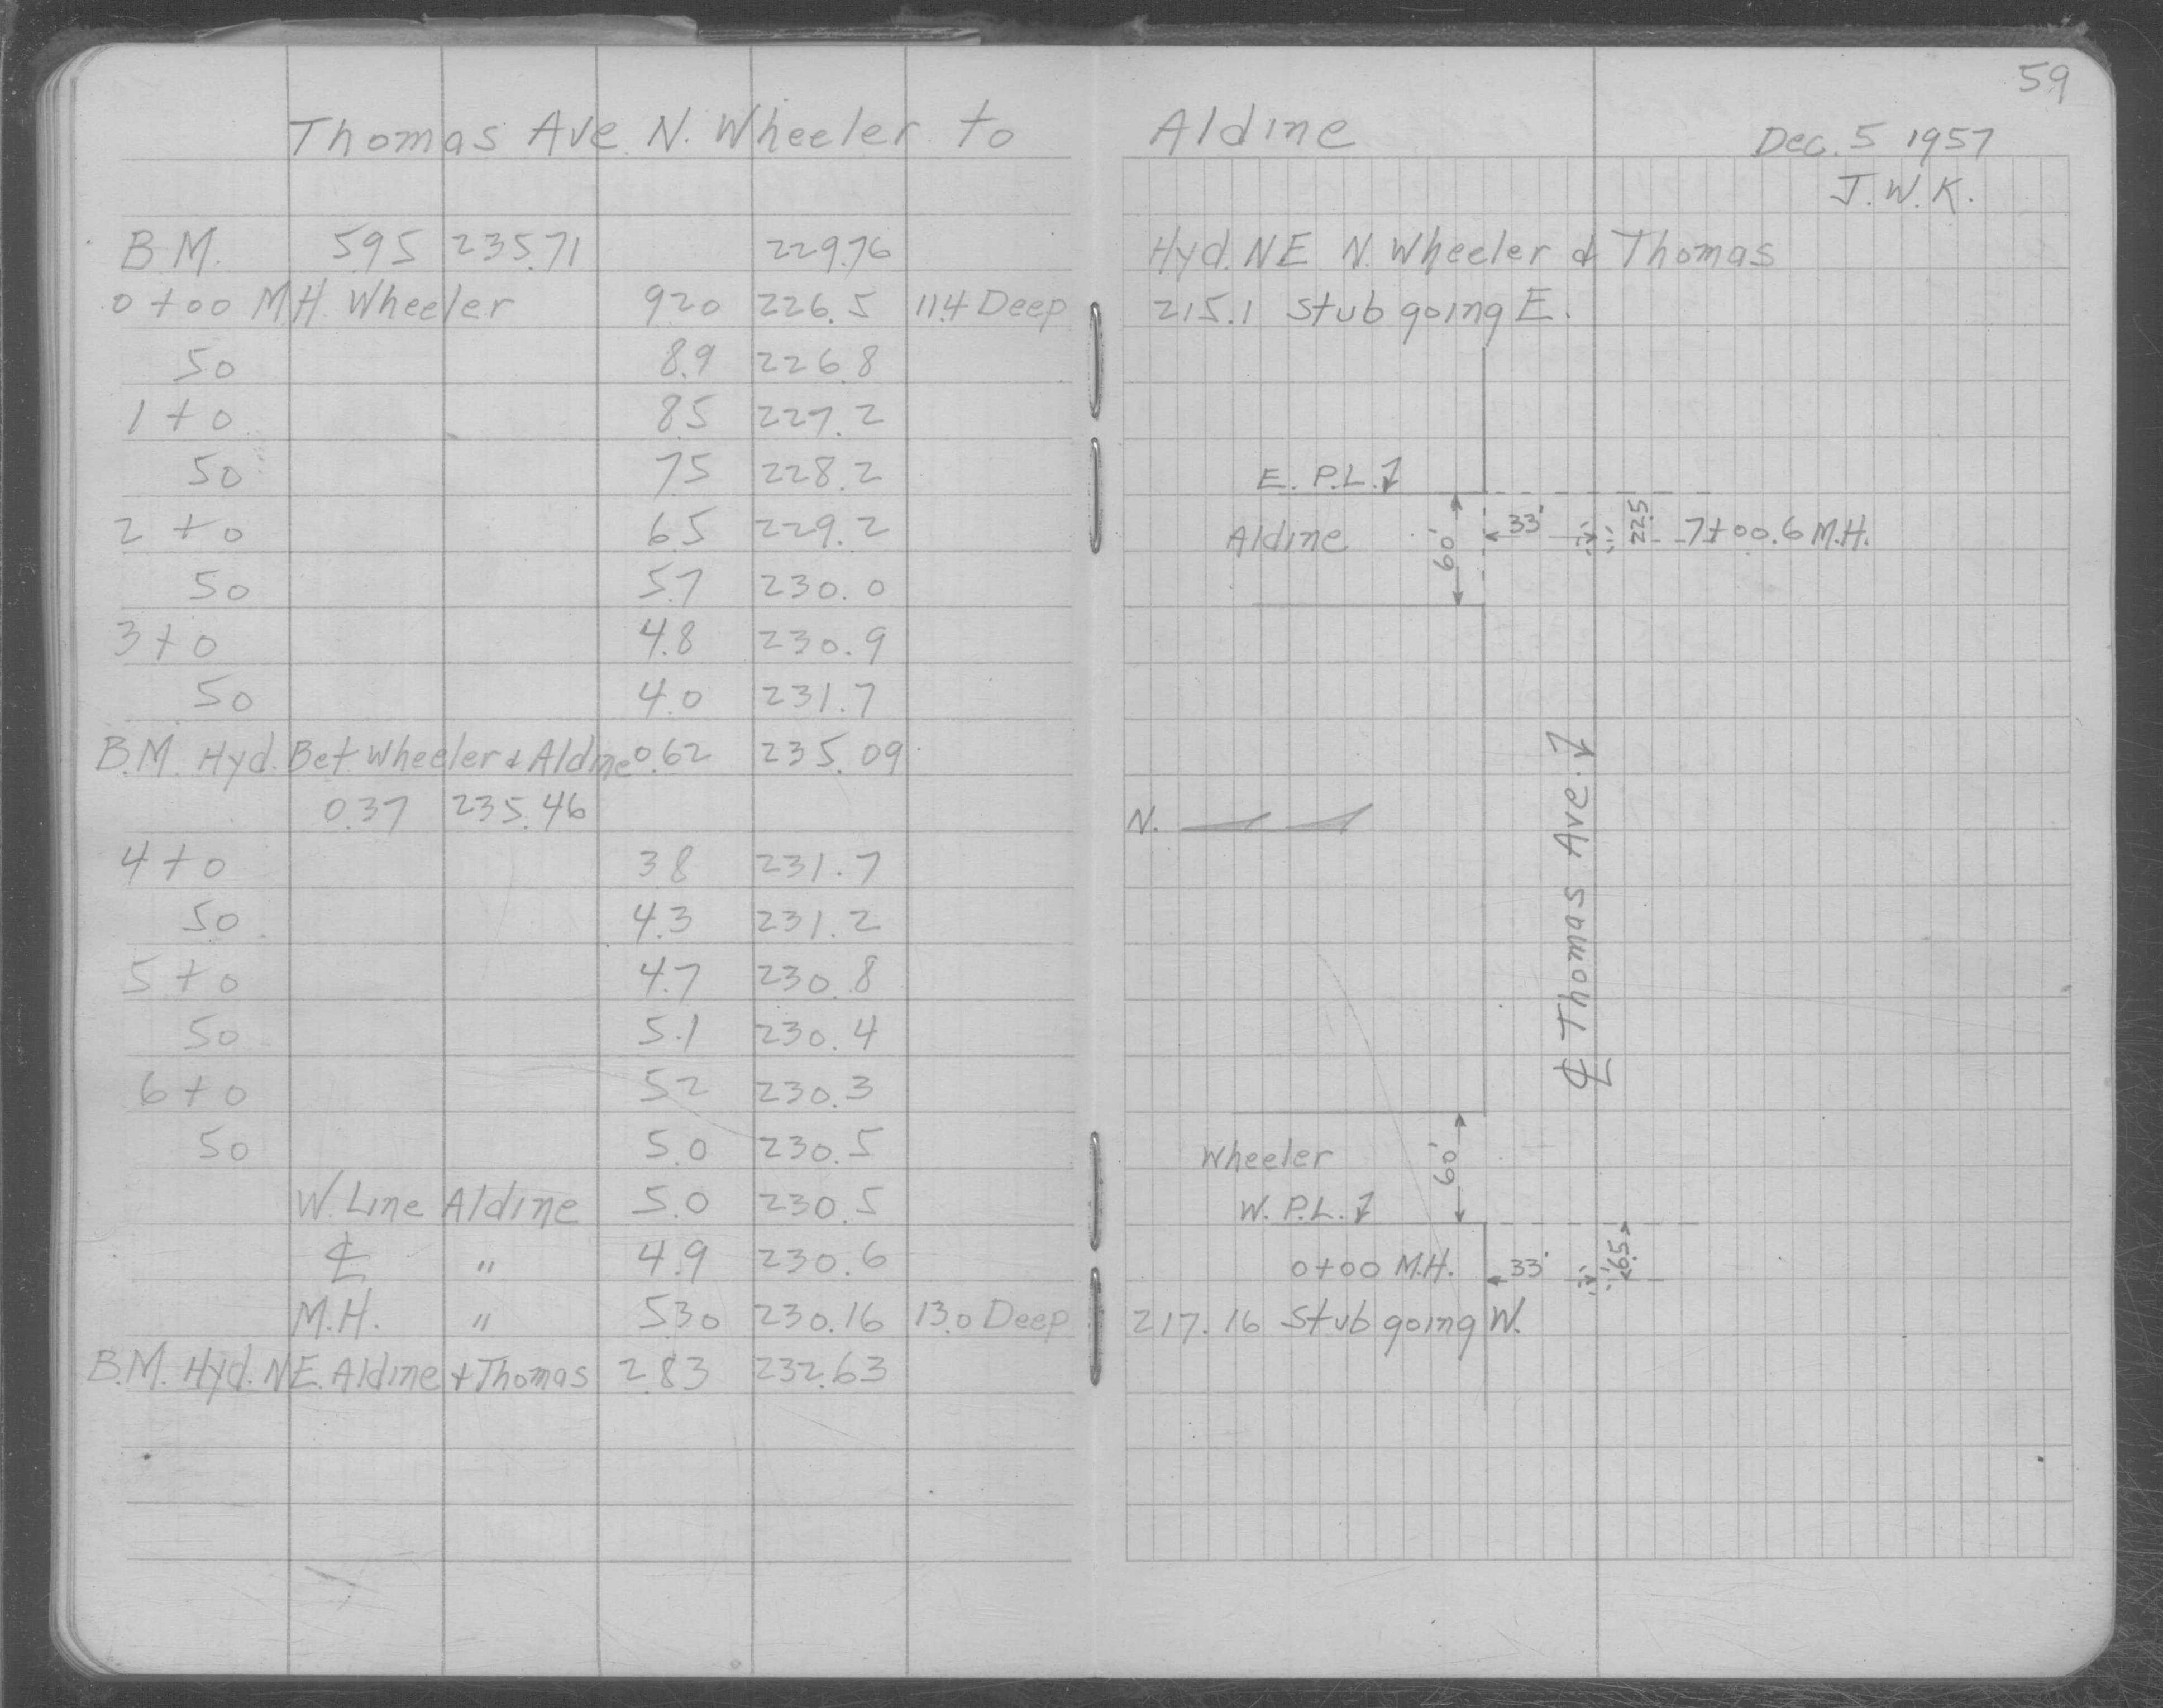 59
Thomas Ave N. Wheeler to Aldine
Dec. 5 1957
J.W.K.
B.M. 5.95 235.71 229.76 Hyd. NE N. Wheeler & Thomas
0+00 M.H. Wheeler 9.20 226.5 11.4 Deep 215.1 Stub going E.
50 8.9 226.8
1+0 8.5 227.2
50 7.5 228.2
2+0 6.5 229.2
50 5.7 230.0
3+0 4.8 230.9
50 4.0 231.7
B.M. Hyd. Bet Wheeler & Aldine 0.62 235.09
0.37 235.46
4+0 3.8 231.7
50 4.3 231.2
5+0 4.7 230.8
50 5.1 230.4
6+0 5.2 230.3
50 5.0 230.5
W. Line Aldine 5.0 230.5
℄ " 4.9 230.6
M.H. " 5.30 230.16 13.0 Deep 217.16 Stub going W.
B.M. Hyd. NE. Aldine & Thomas 2.83 232.63
E. P.L.
Aldine 60' 33' 22.5 7+00.6 M.H.
N.
℄ Thomas Ave.
Wheeler 60'
W. P.L.
0+00 M.H. 33' 6.5